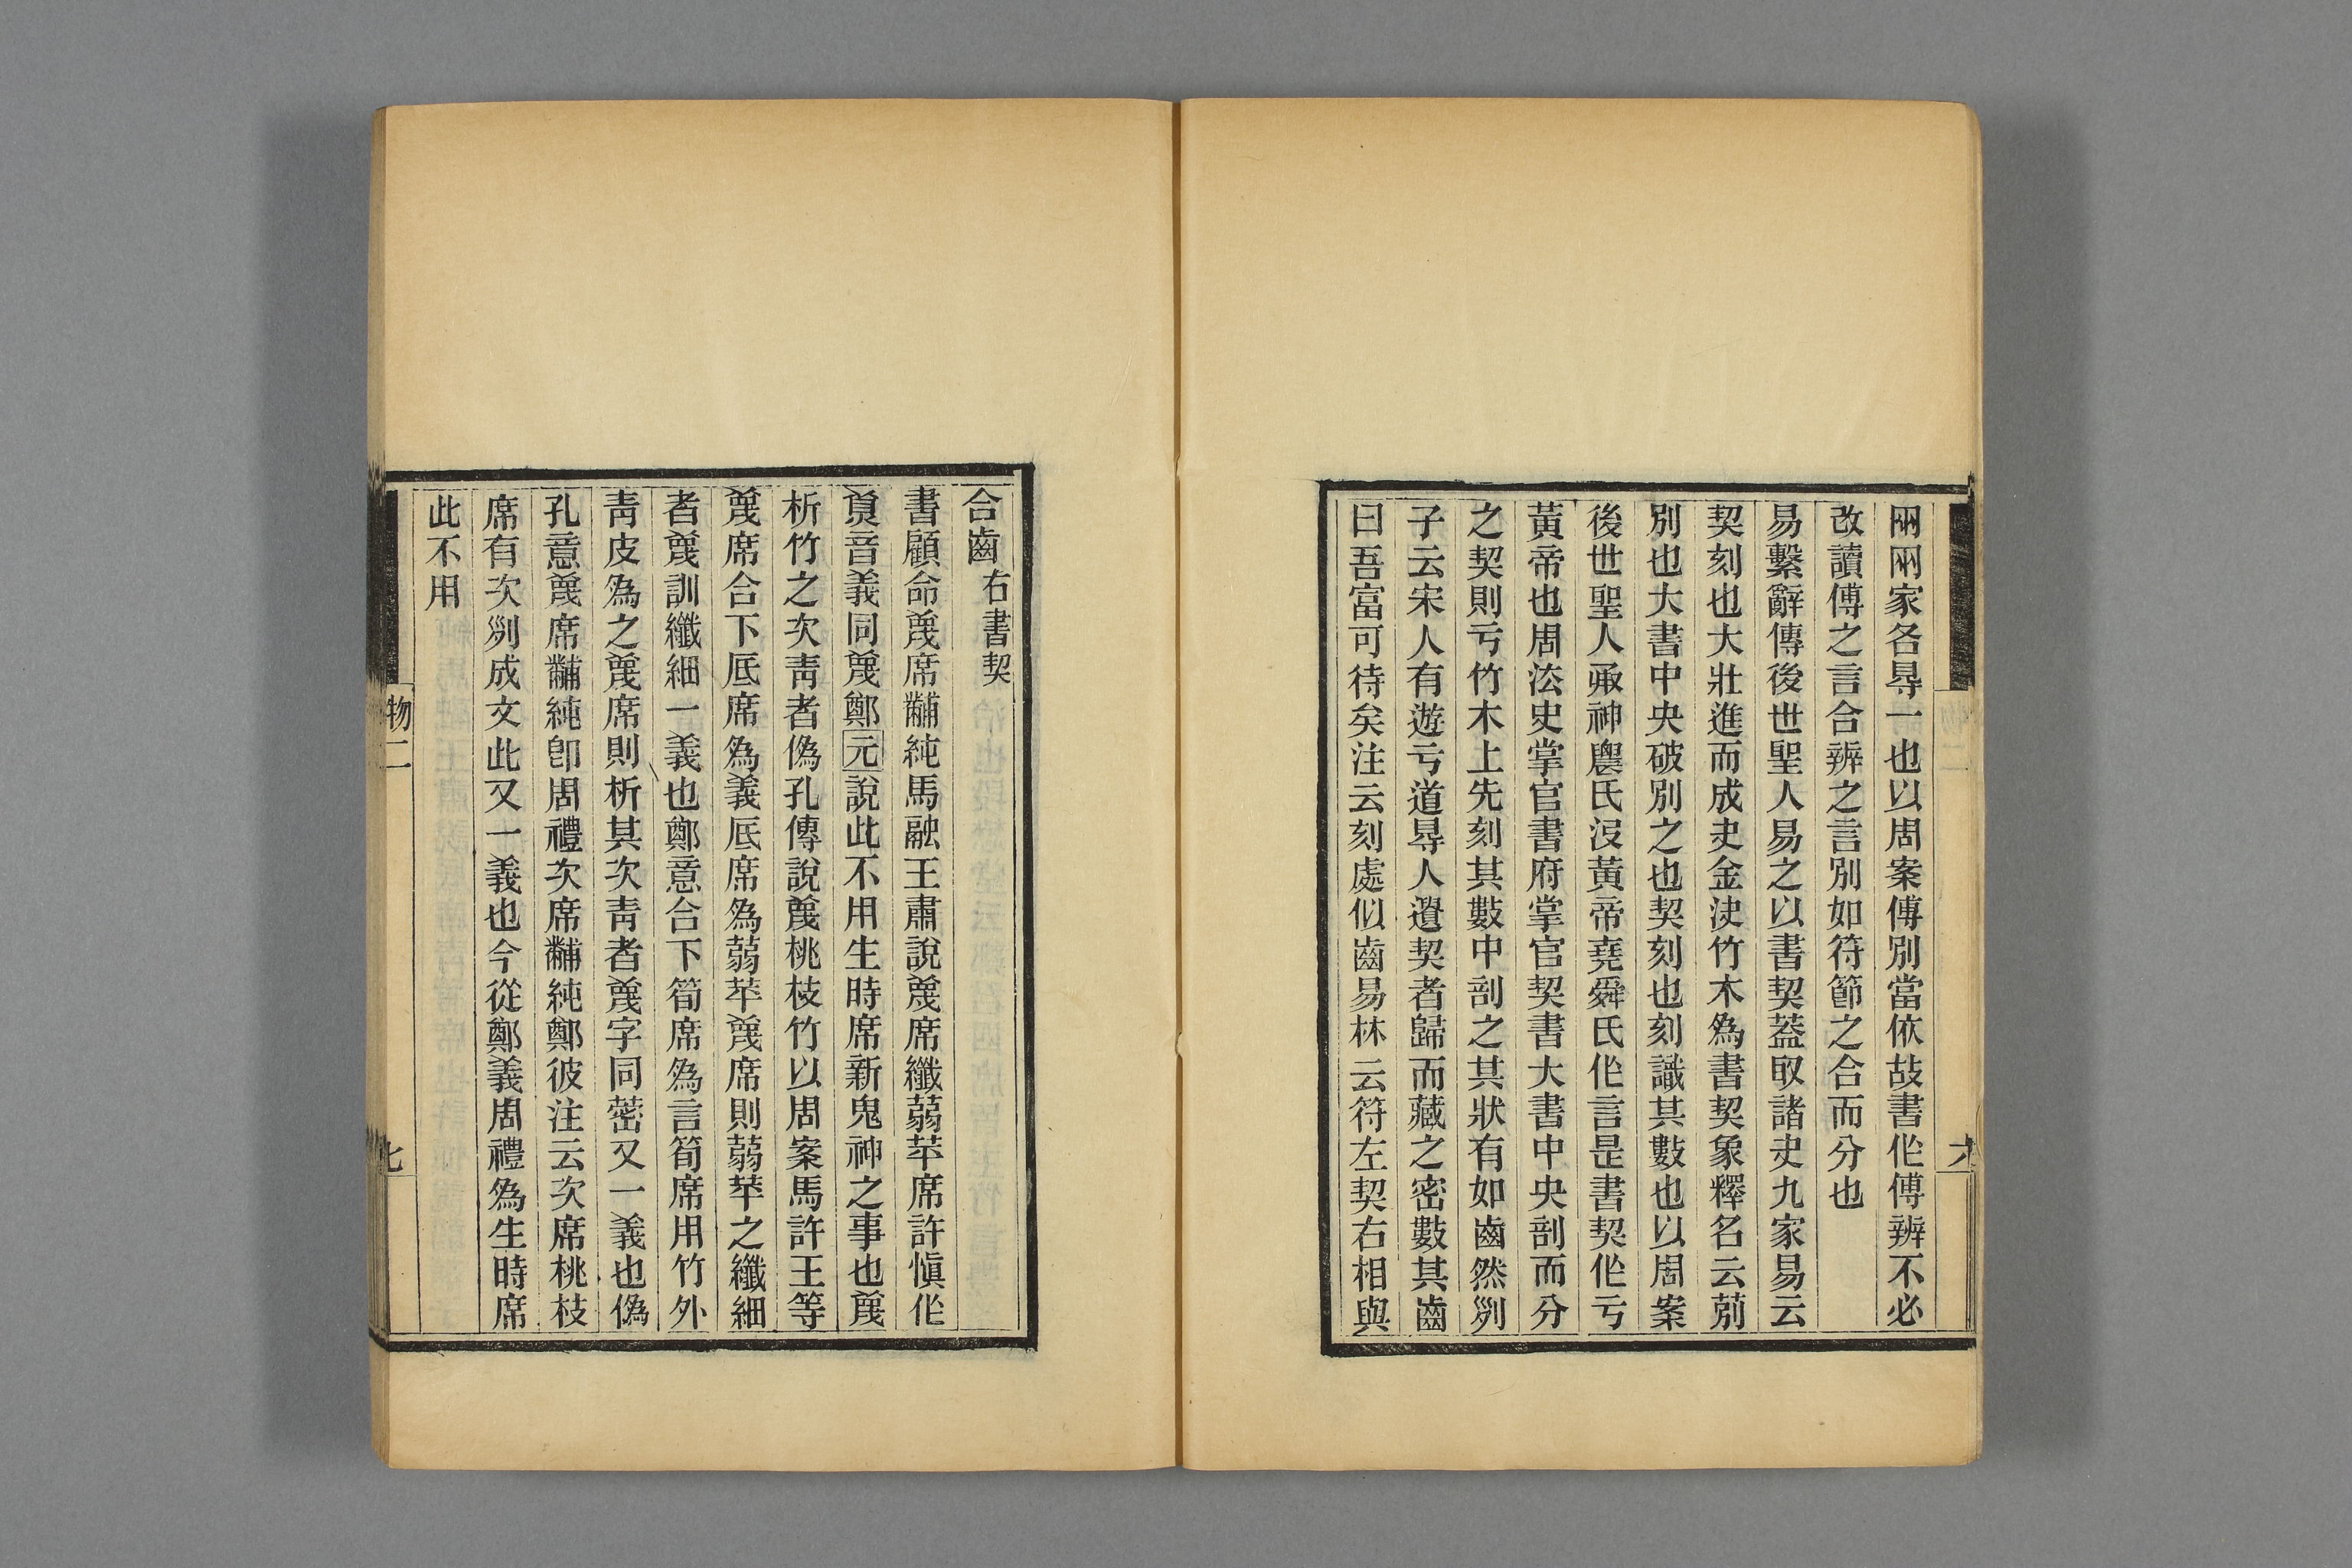 兩兩家各㝵一也以周案傅別當依故書作傅辨不必
改讀傅之言合辨之言別如符節之合而分也
易繫辭傳後世聖人易之以書契蓋取諸夬九家易云
契刻也大壯進而成夬金決竹木爲書契象釋名云莂
別也大書中央破別之也契刻也刻識其數也以周案
後世聖人承神農氏沒黃帝堯舜氏作言是書契作亏
黃帝也周法史掌官書府掌官契書大書中央剖而分
之契則亏竹木上先刻其數中剖之其狀有如齒然列
子云宋人有遊亏道㝵人遺契者歸而藏之密數其齒
曰吾富可待矣注云刻處似齒易林云符左契右相與
六
合齒右書契
書顧命蔑席黼純馬融王肅說蔑席纖蒻苹席許愼作
蔑音義同蔑鄭元說此不用生時席新鬼神之事也蔑
析竹之次靑者僞孔傳說蔑桃枝竹以周案馬許王等
蔑席合下厎席爲義厎席爲蒻苹蔑席則蒻苹之纖細
者蔑訓纖細一義也鄭意合下筍席爲言筍席用竹外
靑皮爲之蔑席則析其次靑者蔑字同䈼又一義也僞
孔意蔑席黼純卽周禮次席黼純鄭彼注云次席桃枝
席有次列成文此又一義也今從鄭義周禮爲生時席
此不用
物二
七